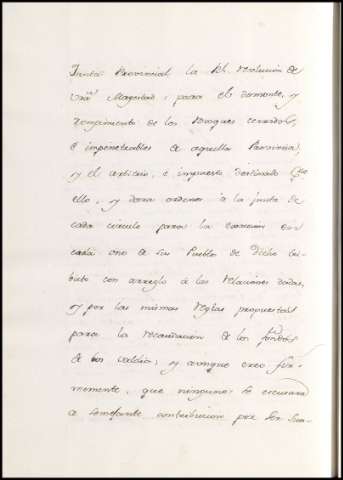 Junta Provincial la Rl. resolucion de
Vrã. Magestad, para el desmonte, y
rompimento de los Bosques cerrados,
é impenetrables de aquella Provincia,
y el arbitrio, é impuesto destinado
ello, y dara ordenes à la junta de
cada circulo para la esaccion en
cada uno de sus Pueblos de dicho tri-
buto con arreglo à las relaciones dadas,
y por las mismas reglas propuestas
para la recaudacion de los fondos
de los valdios; y aunque creo fir-
memente, que ninguno se escusara
a semejante contribucion por ser